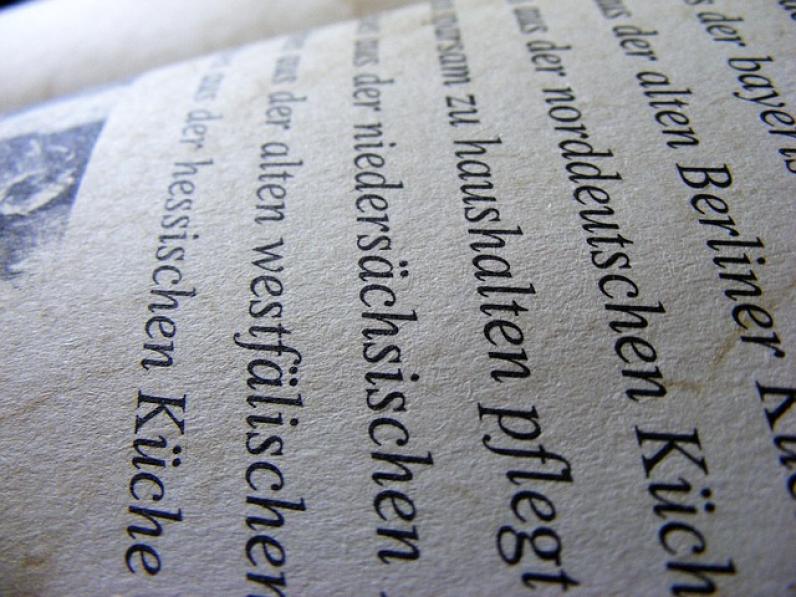 der bayeris
der alten Berliner Kü
aus der norddeutschen Küch
sam zu haushalten pflegt
aus der niedersächsischen
aus der alten westfälischen
aus der hessischen Küche